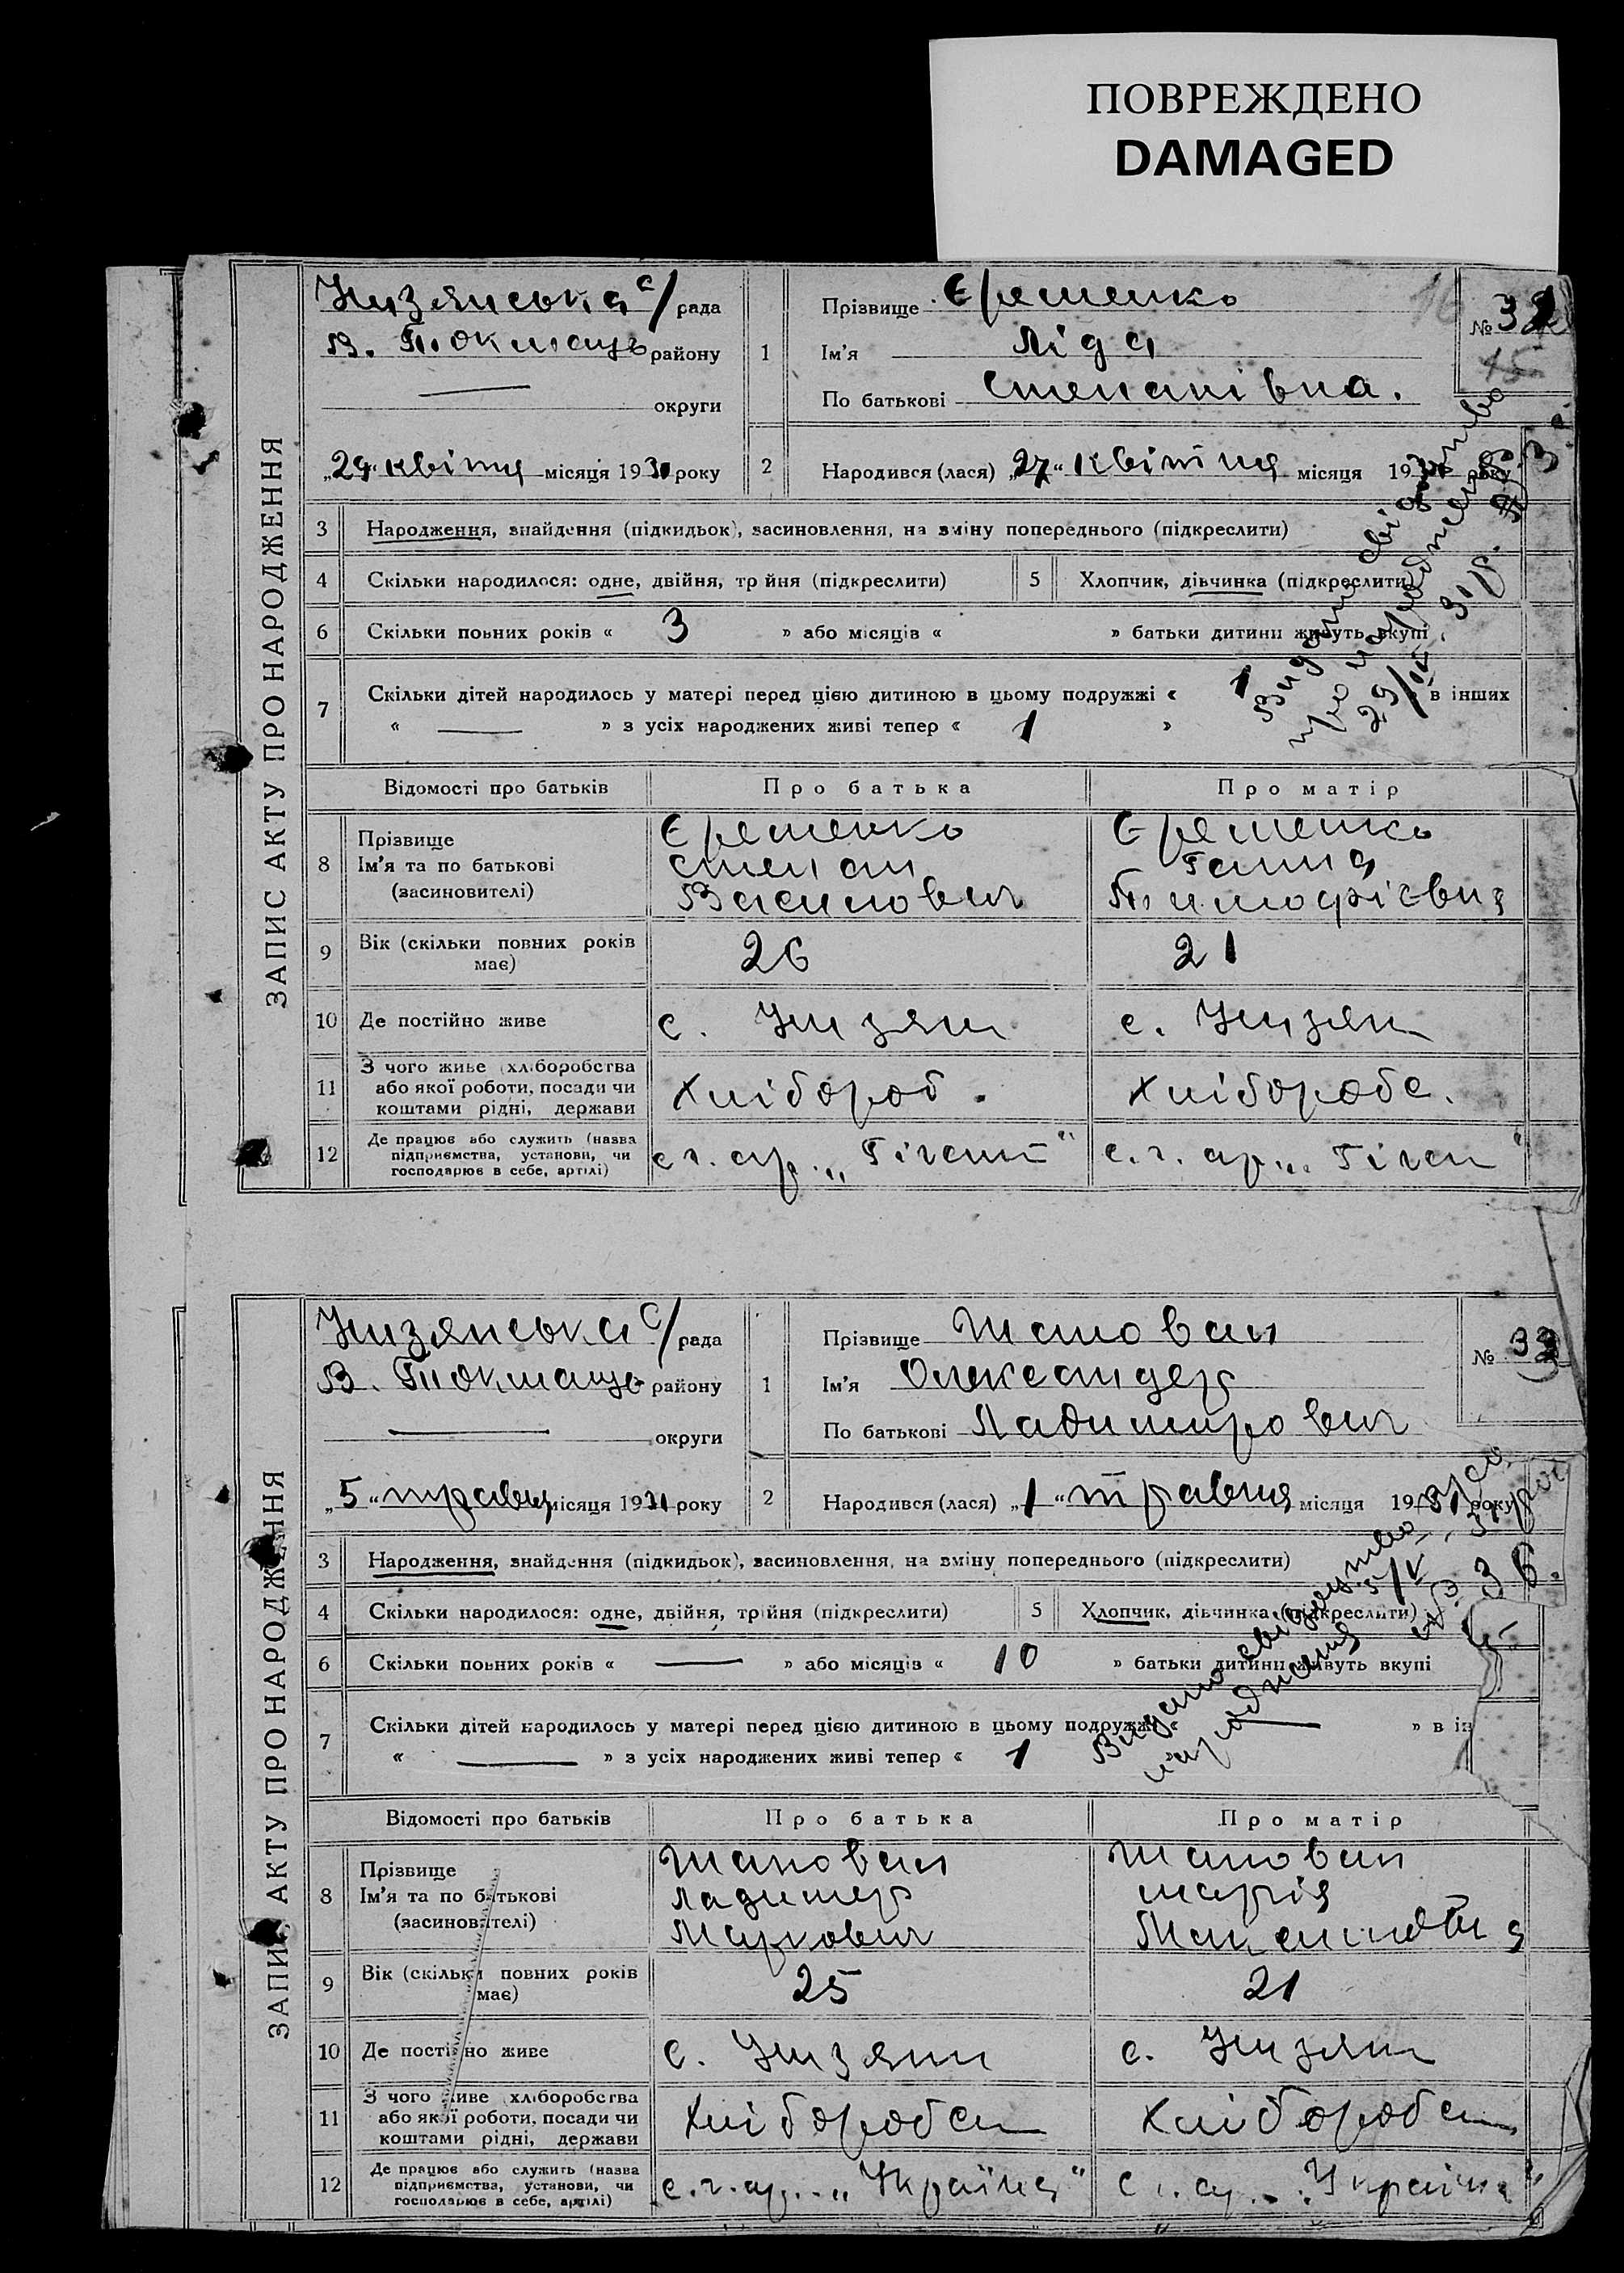 ПОВРЕЖДЕНО
DAMAGED
ЗАПИС АКТУ ПРО НАРОДЖЕННЯ
Низянська с/рада
В. Токмацьк району
округи
„29“ квітня місяця 1931 року
1
Прізвище Єременко
Ім'я Ліда
По батькові Степанівна.
№ 32
2
Народився (лася) „27“ квітня місяця 1931 року
3 Народження, знайдення (підкидьок), засиновлення, на зміну попереднього (підкреслити)
4 Скільки народилося: одне, двійня, тр йня (підкреслити)
5 Хлопчик, дівчинка (підкреслити)
6 Скільки повних років « 3 » або місяців « » батьки дитини живуть вкупі
7 Скільки дітей народилось у матері перед цією дитиною в цьому подружжі « 1 в інших
« — » з усіх народжених живі тепер « 1 »
Видано свідоцтво
про народження
29/IV. 31 р.
Відомості про батьків Про батька Про матір
8 Прізвище
Ім'я та по батькові
(засиновителі)
Єременко
Степан
Василович
Єременко
Ганна
Тимофієвна
9 Вік (скільки повних років має) 26 21
10 Де постійно живе с. Низяни с. Низян
11 З чого живе (хліборобства
або якої роботи, посади чи
коштами рідні, держави
Хлібороб. Хліборобс.
12 Де працює або служить (назва
підприємства, установи, чи
господарює в себе, артілі)
с.г. ар. „Гігант“ с.г. ар. „Гіган“
ЗАПИС АКТУ ПРО НАРОДЖЕННЯ
Низянська с/рада
В. Токмацьк району
округи
„5“ травня місяця 1931 року
1
Прізвище Шаповал
Ім'я Олександер
По батькові Ладимирович
№ 33
2
Народився (лася) „1“ травня місяця 1931 року
3 Народження, знайдення (підкидьок), засиновлення, на зміну попереднього (підкреслити)
4 Скільки народилося: одне, двійня, трійня (підкреслити)
5 Хлопчик, дівчинка (підкреслити)
6 Скільки повних років « — » або місяців « 10 » батьки дитини живуть вкупі
7 Скільки дітей народилось у матері перед цією дитиною в цьому подружжі « — » в ін
« — » з усіх народжених живі тепер « 1
Видано свідоцтво про
народження 5/V - 31 рок
№ 36.
Відомості про батьків Про батька Про матір
8 Прізвище
Ім'я та по батькові
(засиновителі)
Шаповал
Ладимер
Маркович
Шаповал
Марія
9 Вік (скільки повних років має) 25 21
10 Де постійно живе с. Низяни с. Низяни
11 З чого живе (хліборобства
або якої роботи, посади чи
коштами рідні, держави
Хліборобст Хліборобст
12 Де працює або служить (назва
підприємства, установи, чи
господарює в себе, артілі)
с.г. ар. „Україна“ с.г. ар. „Україна“